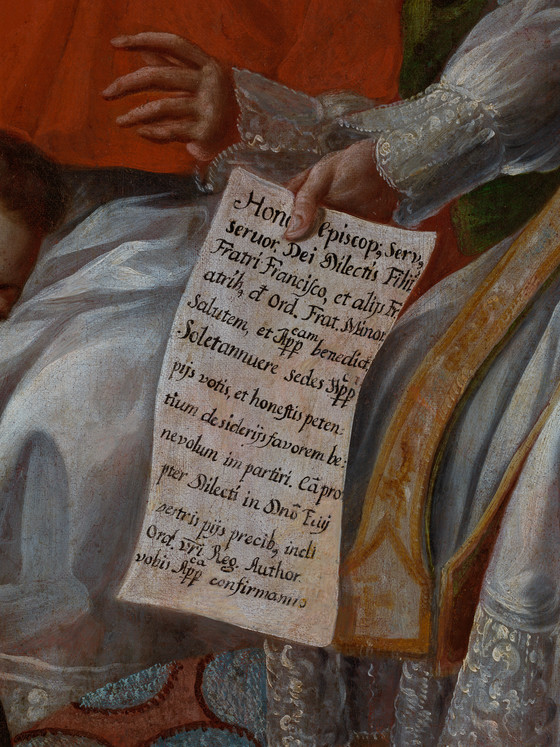 Hono Episcop; Serv,
Seruor. Dei Dilectis Filii
Fratri Francisco, et alijs Fr.
atrib, đ Ord. Frat. Minor
Salutem, et App eam benedict.
Soletannuere Sedes App cã
pijs votis, et honestis peten:
tium desiderijs favorem be:
nevolum im partiri. Eã pro
pter Dilecti in Dnõ Fiıj
vestris pijs precib, incli
Ord. vrĩ Reg. Author.
vobis App cã confirmamus